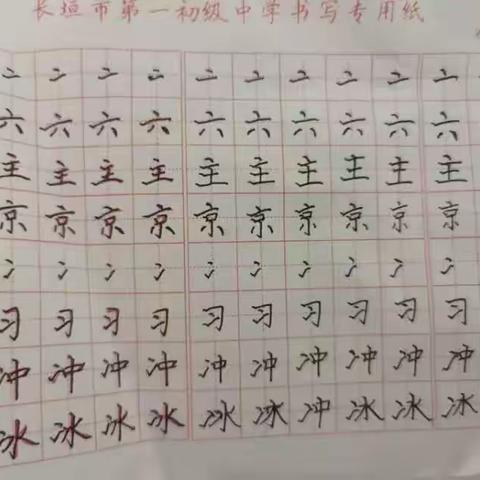 长垣市第一初级中学书写专用纸
亠亠亠亠亠亠亠亠亠亠
六六六六六六六六六六
主主主主主主主主主主
京京京京京京京京京京
冫冫冫冫冫冫冫冫冫冫
习习习习习习习习习习
冲冲冲冲冲冲冲冲冲冲
冰冰冰冰冰冰冲冰冰冰